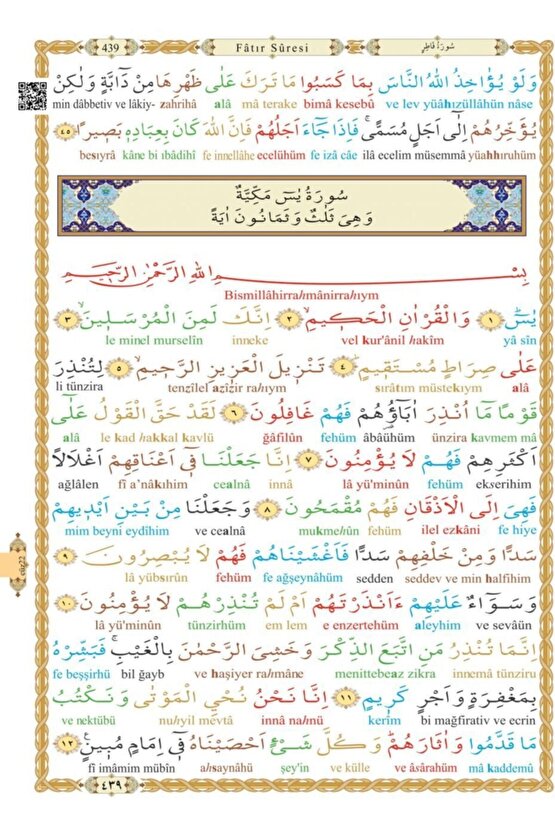 439 Fâtır Sûresi سُورَةُ فَاطِرٍ
وَلَوْ يُؤَاخِذُ اللّٰهُ النَّاسَ بِمَا كَسَبُوا مَا تَرَكَ عَلٰى ظَهْرِهَا مِنْ دَٓابَّةٍ وَلٰكِنْ
min dâbbetiv ve lâkiy- zahrihâ alâ mâ terake bimâ kesebû ve lev yüâhızüllâhün nâse
يُؤَخِّرُهُمْ اِلٰٓى اَجَلٍ مُسَمًّىۚ فَاِذَا جَٓاءَ اَجَلُهُمْ فَاِنَّ اللّٰهَ كَانَ بِعِبَادِهٖ بَصٖيرًا ﴿٤٥﴾
besıyrâ kâne bi ıbâdihî fe innellâhe ecelühüm fe izâ câe ilâ ecelim müsemmâ yüahhıruhüm
سُورَةُ يٰسٓ مَكِّيَّةٌ
وَهِىَ ثَلٰثٌ وَثَمَانُونَ اٰيَةً
بِسْمِ اللّٰهِ الرَّحْمٰنِ الرَّحٖيمِ
Bismillâhirrahmânirrahıym
يٰسٓۚ ﴿١﴾ وَالْقُرْاٰنِ الْحَكٖيمِۙ ﴿٢﴾ اِنَّكَ لَمِنَ الْمُرْسَلٖينَۙ ﴿٣﴾
le minel murselîn inneke vel kur'ânil hakîm yâ sîn
عَلٰى صِرَاطٍ مُسْتَقٖيمٍؕ ﴿٤﴾ تَنْزٖيلَ الْعَزٖيزِ الرَّحٖيمِۙ ﴿٥﴾ لِتُنْذِرَ
li tünzira tenzîlel azîzir rahıym sırâtım müstekıym alâ
قَوْمًا مَٓا اُنْذِرَ اٰبَٓاؤُ۬هُمْ فَهُمْ غَافِلُونَ ﴿٦﴾ لَقَدْ حَقَّ الْقَوْلُ عَلٰٓى
alâ le kad hakkal kavlü ğâfilûn fehüm âbâühüm ünzira kavmem mâ
اَكْثَرِهِمْ فَهُمْ لَا يُؤْمِنُونَ ﴿٧﴾ اِنَّا جَعَلْنَا فٖٓى اَعْنَاقِهِمْ اَغْلَالًا
ağlâlen fî a'nâkıhim cealnâ innâ lâ yü'minûn fehüm ekserihim
فَهِىَ اِلَى الْاَذْقَانِ فَهُمْ مُقْمَحُونَ ﴿٨﴾ وَجَعَلْنَا مِنْ بَيْنِ اَيْدٖيهِمْ
mim beyni eydîhim ve cealnâ mukmehûn fehüm ilel ezkâni fe hiye
سَدًّا وَمِنْ خَلْفِهِمْ سَدًّا فَاَغْشَيْنَاهُمْ فَهُمْ لَا يُبْصِرُونَ ﴿٩﴾
lâ yübsırûn fehüm fe ağşeynâhüm sedden seddev ve min halfihim
وَسَوَٓاءٌ عَلَيْهِمْ ءَاَنْذَرْتَهُمْ اَمْ لَمْ تُنْذِرْهُمْ لَا يُؤْمِنُونَ ﴿١٠﴾
lâ yü'minûn tünzirhüm em lem e enzertehüm aleyhim ve sevâün
اِنَّمَا تُنْذِرُ مَنِ اتَّبَعَ الذِّكْرَ وَخَشِىَ الرَّحْمٰنَ بِالْغَيْبِۚ فَبَشِّرْهُ
fe beşşirhü bil ğayb ve haşiyer rahmâne menittebeaz zikra innemâ tünziru
بِمَغْفِرَةٍ وَاَجْرٍ كَرٖيمٍ ﴿١١﴾ اِنَّا نَحْنُ نُحْيِ الْمَوْتٰى وَنَكْتُبُ
ve nektübü nuhyil mevtâ innâ nahnü kerîm bi mağfirativ ve ecrin
مَا قَدَّمُوا وَاٰثَارَهُمْؕ وَكُلَّ شَىْءٍ اَحْصَيْنَاهُ فٖٓى اِمَامٍ مُبٖينٍ ﴿١٢﴾
fî imâmim mübîn ahsaynâhü şey'in ve külle ve âsârahüm mâ kaddemû
cüz22
٤٣٩